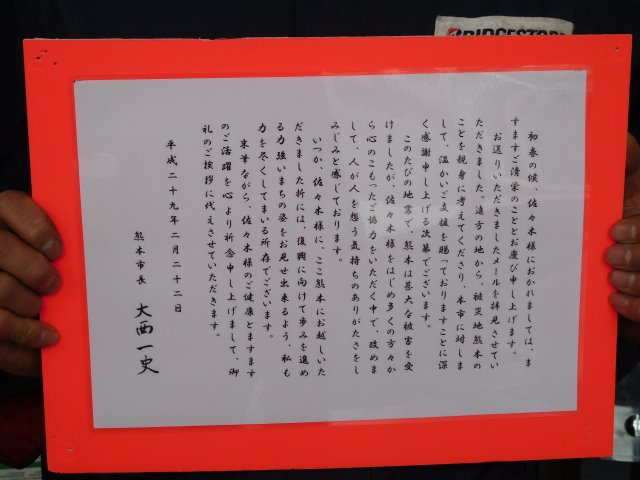 BRIDGESTONE
初春の候、佐々木様におかれましては、ま
すますご清栄のこととお慶び申し上げます。
お送りいただきましたメールを拝見させてい
ただきました。遠方の地から、被災地熊本の
ことを親身に考えてくださり、本市に対しま
して、温かいご支援を賜っておりますことに深
く感謝申し上げる次第でございます。
このたびの地震で、熊本は甚大な被害を受
けましたが、佐々木様をはじめ多くの方々か
ら心のこもったご協力をいただく中で、改めま
して、人が人を想う気持ちのありがたさをし
みじみと感じております。
いつか、佐々木様に、ここ熊本にお越しいた
だきました折には、復興に向けて歩みを進め
る力強いまちの姿をお見せ出来るよう、私も
力を尽くしてまいる所存でございます。
末筆ながら、佐々木様のご健康とますます
のご活躍を心より祈念申し上げまして、御
礼のご挨拶に代えさせていただきます。
平成二十九年二月二十二日
熊本市長 大西一史